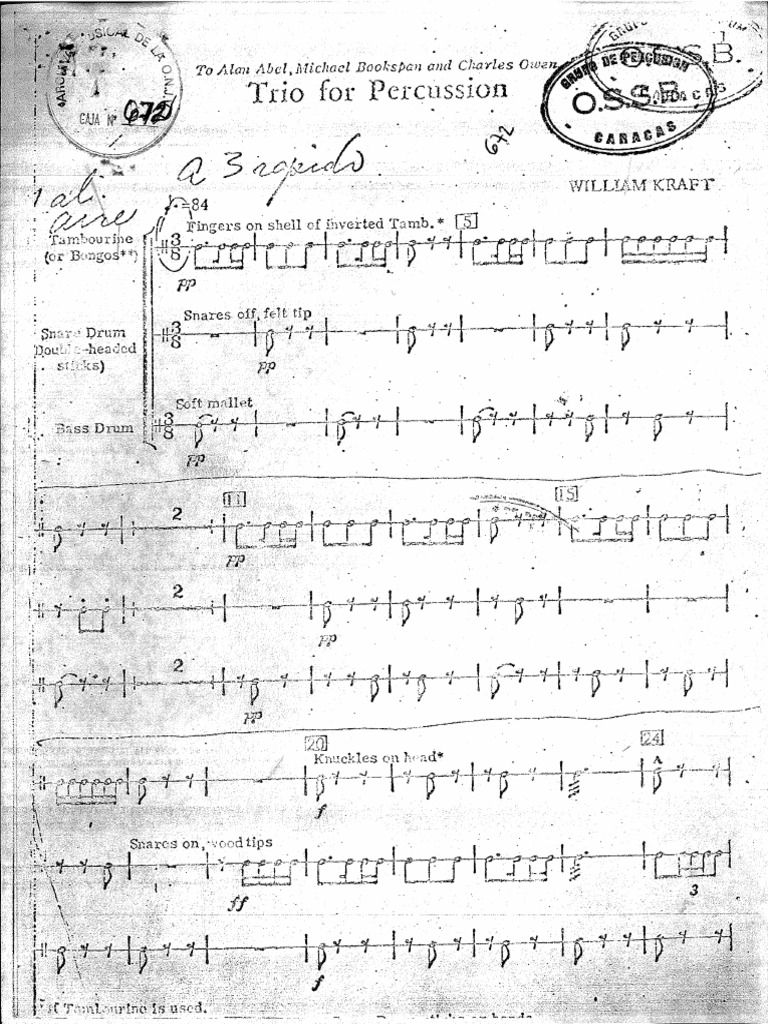 MUSICAL DE LA O.N.J.
CAJA Nº 672
To Alan Abel, Michael Bookspan and Charles Owen
Trio for Percussion
GRUPO
S.B.
CARACAS
GRUPO DE PERCUSION
O.S.S.B.
CARACAS
672
a 3 rapido
WILLIAM KRAFT
1 al aire
=84
Fingers on shell of inverted Tamb.* 5
Tambourine
(or Bongos**)
3 8
pp
Snares off, felt tip
Snare Drum
Double-headed
sticks)
3 8
pp
Soft mallet
Bass Drum
3 8
pp
11
15
2
pp
2
pp
2
pp
20
24
Knuckles on head*
f
Snares on, wood tips
ff
3
f
*if Tambourine is used.